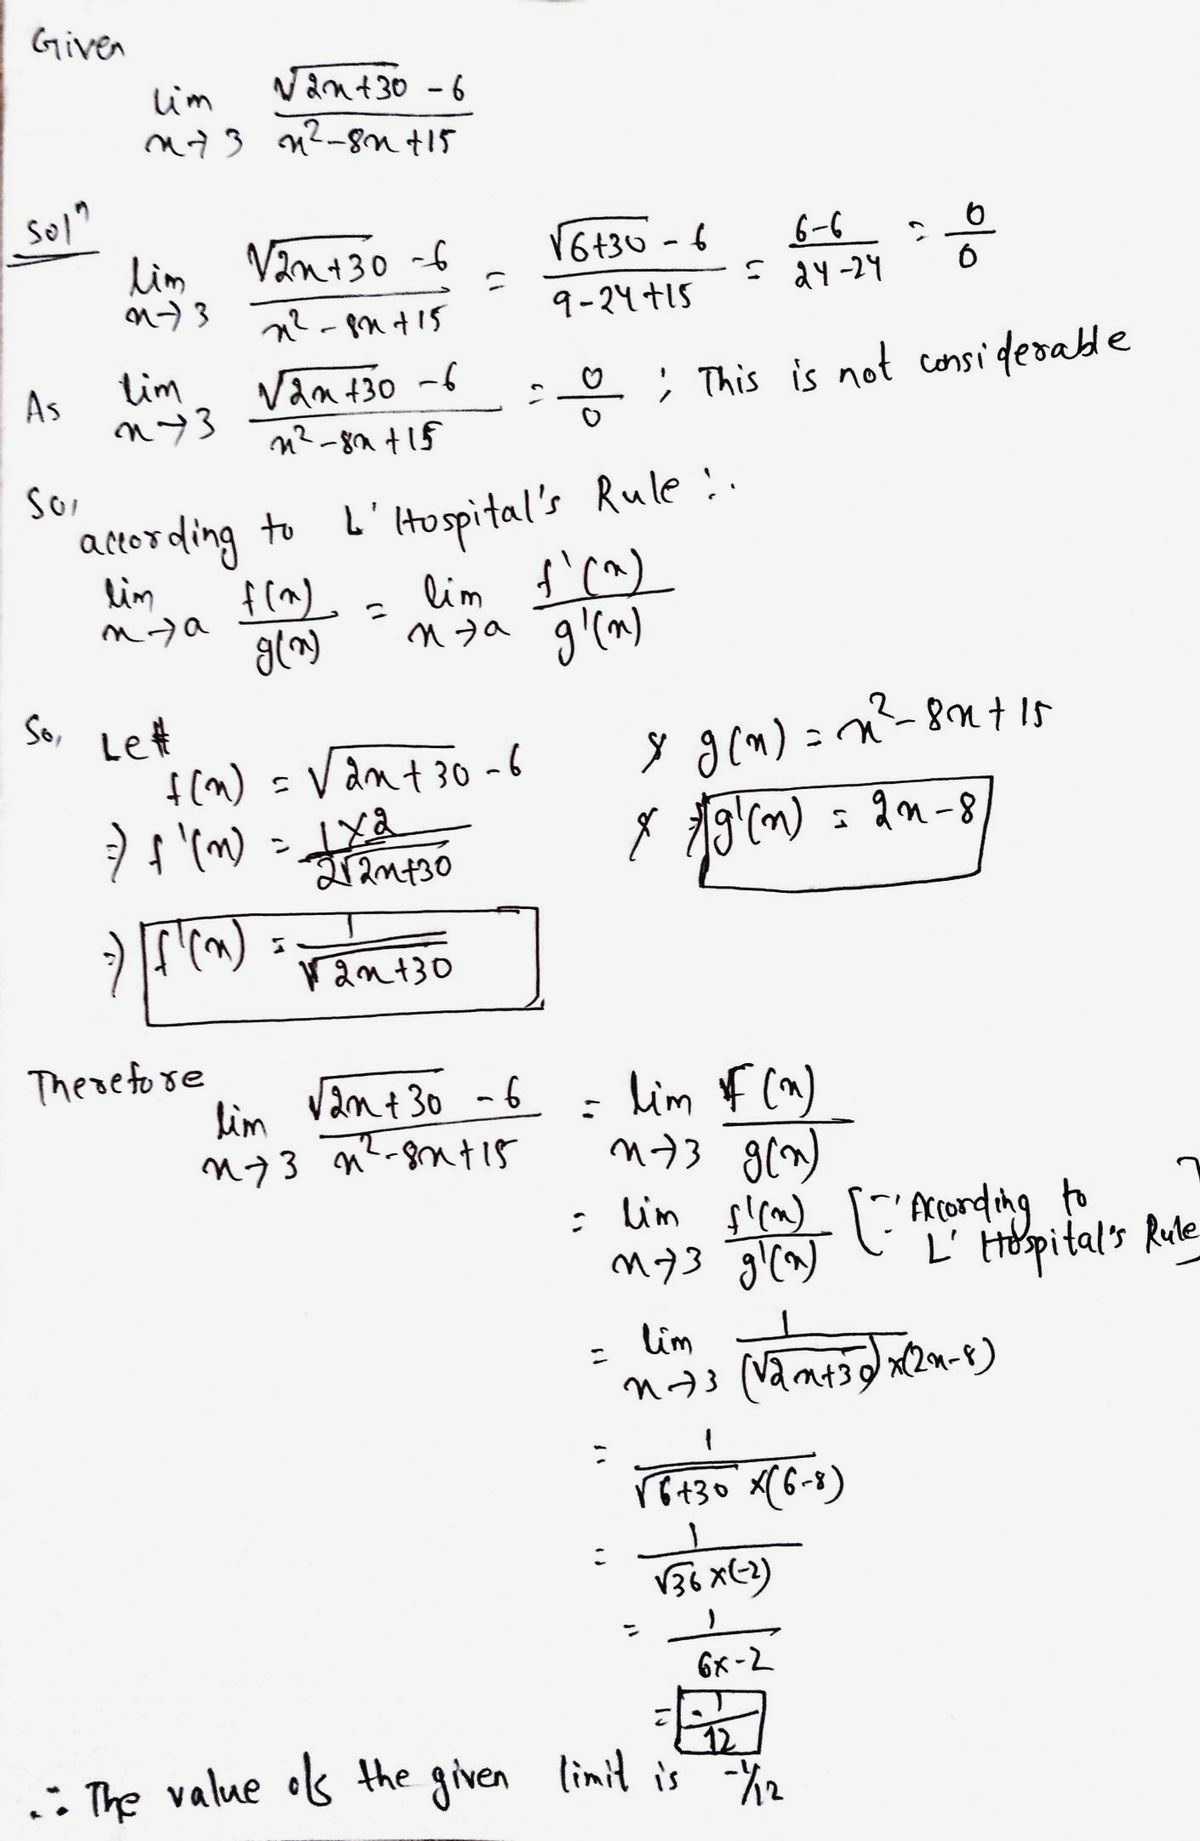 Given
lim x→3 (√(2x+30) - 6)/(x²-8x+15)
Solⁿ
lim x→3 (√(2x+30) - 6)/(x²-8x+15) = (√(6+30) - 6)/(9-24+15) = (6-6)/(24-24) = 0/0
As lim x→3 (√(2x+30) - 6)/(x²-8x+15) = 0/0 ; This is not considerable
So,
according to L'Hospital's Rule :.
lim x→a f(x)/g(x) = lim x→a f'(x)/g'(x)
So, Let
f(x) = √(2x+30) - 6 & g(x) = x²-8x+15
⇒ f'(x) = (1×2)/(2√(2x+30)) & ⇒ g'(x) = 2x-8
⇒ f'(x) = 1/√(2x+30)
Therefore
lim x→3 (√(2x+30) - 6)/(x²-8x+15) = lim x→3 F(x)/g(x)
= lim x→3 f'(x)/g'(x) [∵ According to
L'Hospital's Rule]
= lim x→3 1/((√(2x+30))×(2x-8))
= 1/(√(6+30) ×(6-8))
= 1/(√36 ×(-2))
= 1/(6×-2)
= -1/12
∴ The value of the given limit is -1/12